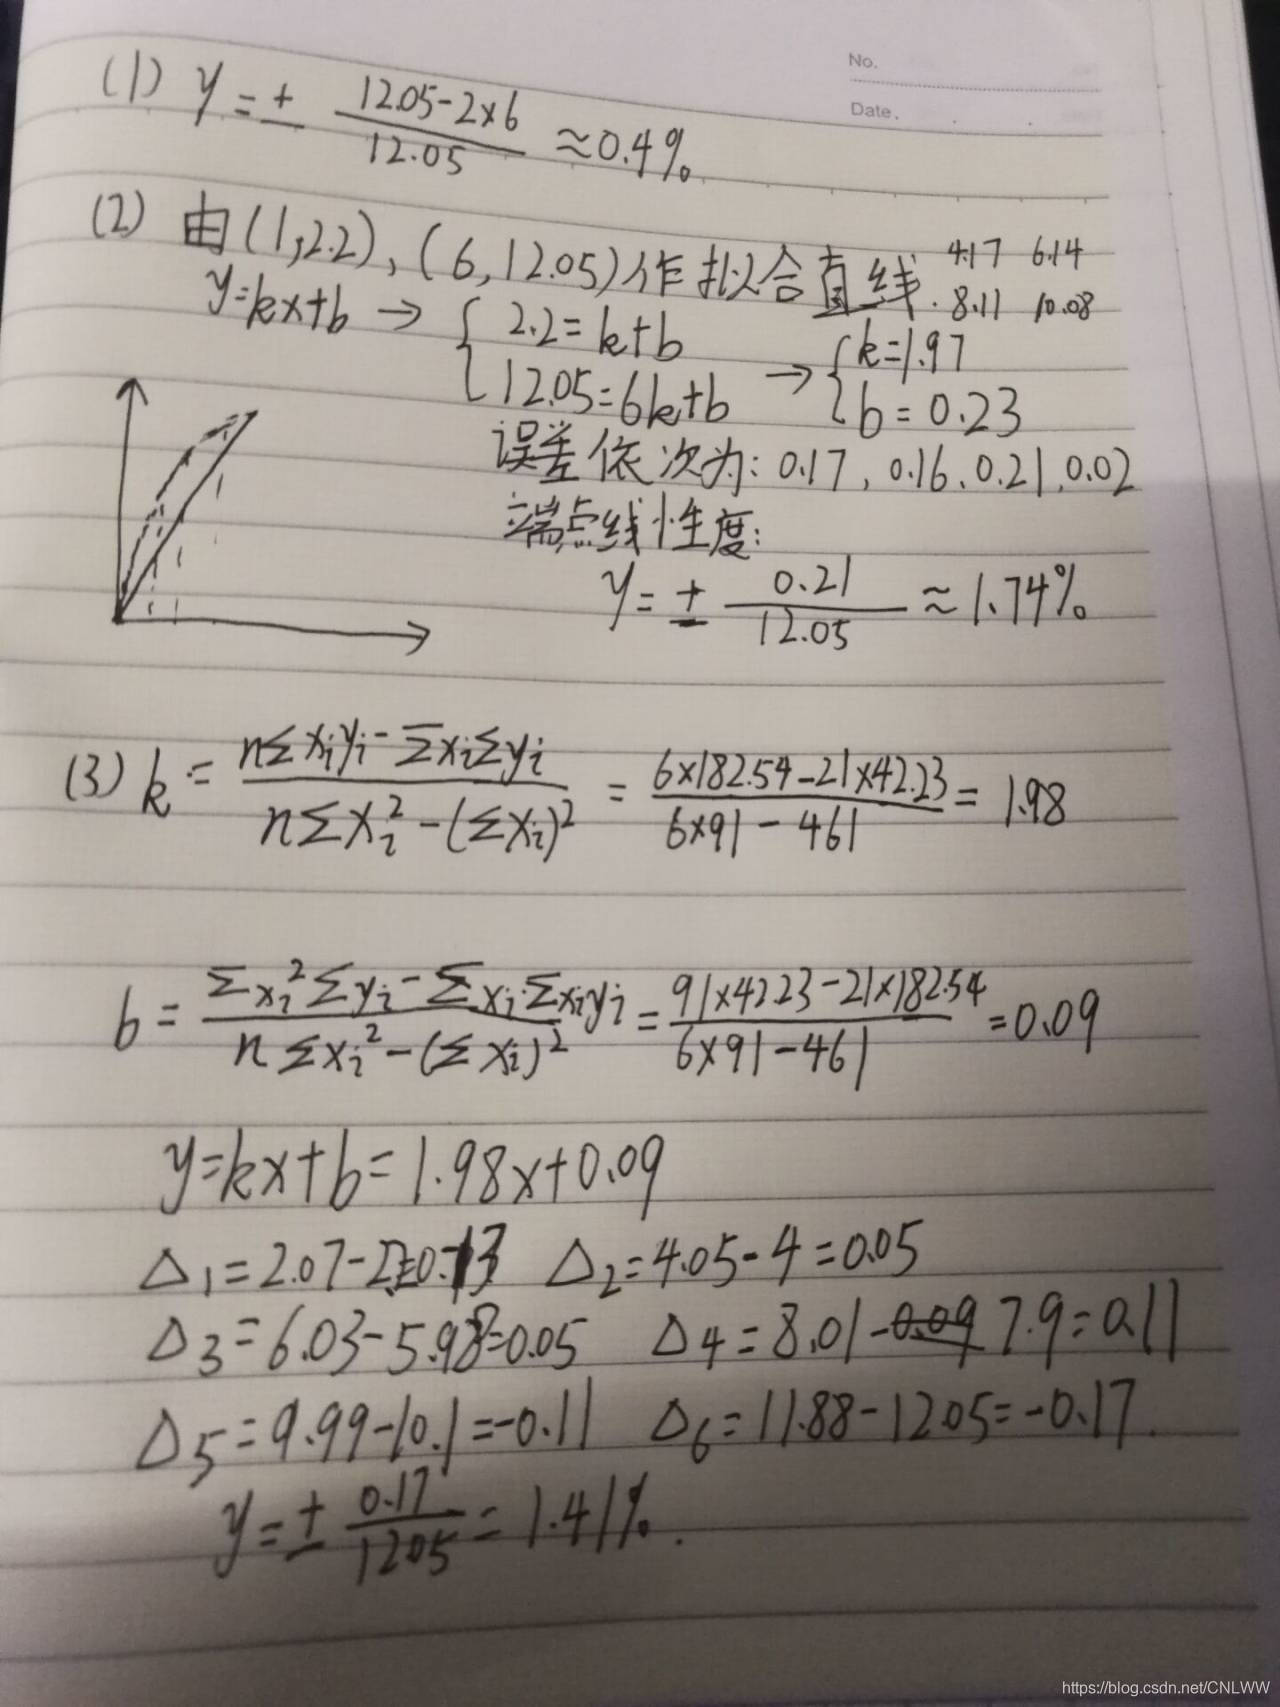 No.
Date.
(1) y=± (12.05-2×6)/12.05 ≈0.4%
(2) 由(1,2.2),(6,12.05)作拟合直线. 4.17 6.14
8.11 10.08
y=kx+b → { 2.2=k+b
12.05=6k+b → { k=1.97
b=0.23
误差依次为: 0.17, 0.16, 0.21, 0.02
端点线性度:
y=± 0.21/12.05 ≈1.74%
(3) k = (nΣxiyi-ΣxiΣyi)/(nΣxi²-(Σxi)²) = (6×182.54-21×42.23)/(6×91-461) = 1.98
b = (Σxi²Σyi-ΣxiΣxiyi)/(nΣxi²-(Σxi)²) = (91×42.23-21×182.54)/(6×91-461) =0.09
y=kx+b=1.98x+0.09
Δ1=2.07-2.2=0.13 Δ2=4.05-4=0.05
Δ3=6.03-5.98=0.05 Δ4=8.01-0.09 7.9=0.11
Δ5=9.99-10.1=-0.11 Δ6=11.88-12.05=-0.17.
y=± 0.17/12.05 = 1.41%.
https://blog.csdn.net/CNLWW